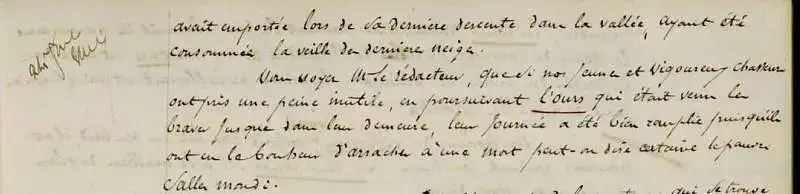 avait emportée lors de sa derniere descente dans la vallée, ayant été
consommée la veille du derniere neige.
Vous voyez Mr le rédacteur, que si nos jeunes et vigoureux chasseurs
ont pris une peine inutile, en poursuivant l'ours qui était venu les
braver jusque dans leur demeure, leur journée a été bien remplie puisqu'ils
ont eu le bonheur d'arracher à une mort peut-on dire certaine le pauvre
Sallesmonde.
qui se trouve